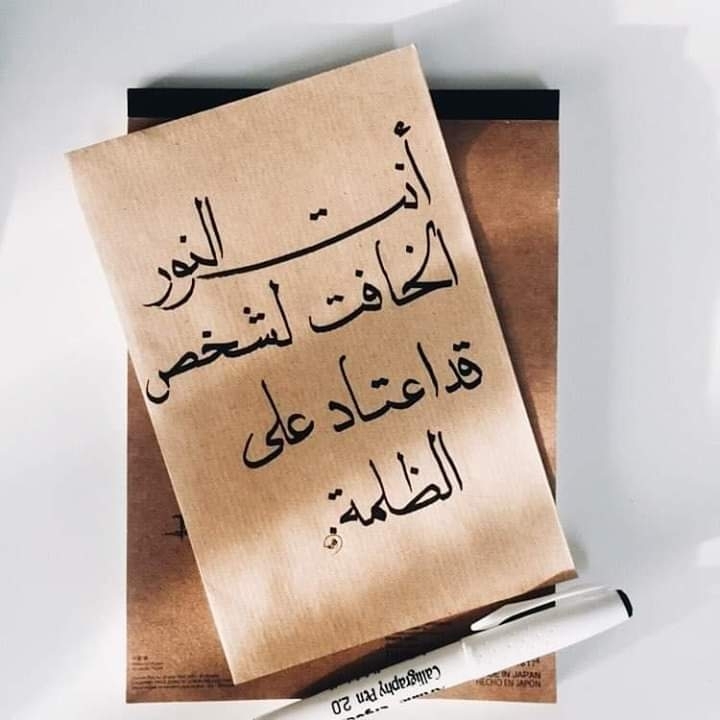 أنت النور
الخافت لشخص
قد اعتاد على
الظلمة.
MADE IN JAPAN
HECHO EN JAPON
Calligraphy Pen 2.0